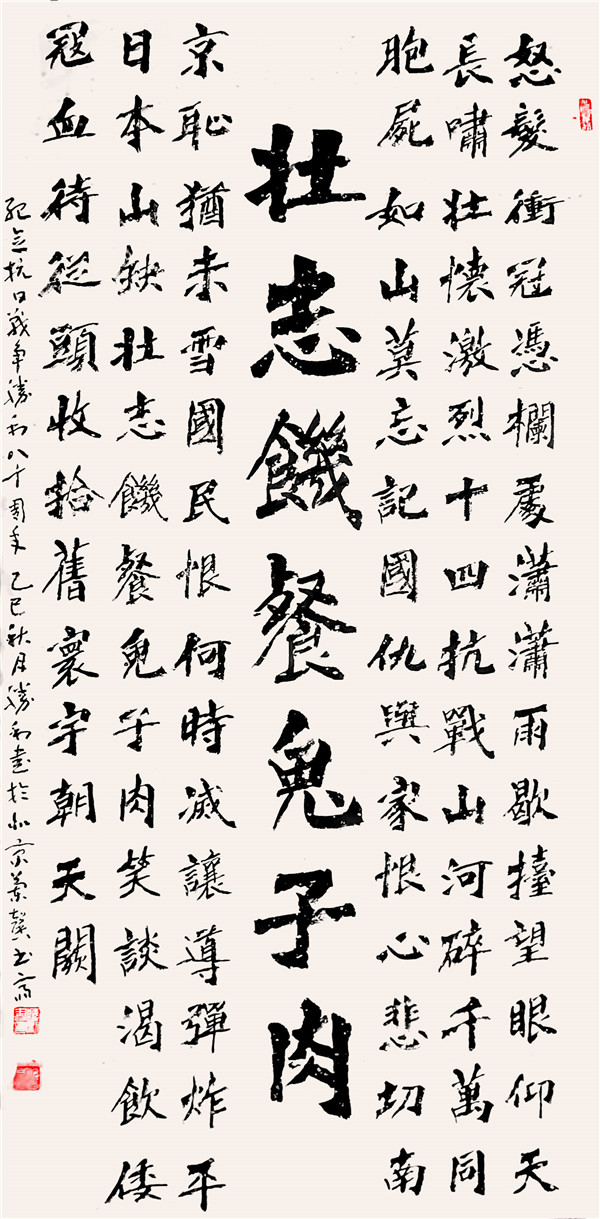 怒髮衝冠憑欄處瀟瀟雨歇擡望眼仰天
長嘯壯懷激烈十四抗戰山河碎千萬同
胞屍如山莫忘記國仇與家恨心悲切南
壯志饑餐鬼子肉
京恥猶未雪國民恨何時滅讓導彈炸平
日本山缺壯志饑餐鬼子肉笑談渴飲倭
寇血待從頭收拾舊寰宇朝天闕
紀念抗日戰争勝利八十周年乙巳秋月勝利書於北京蘭馨書齋